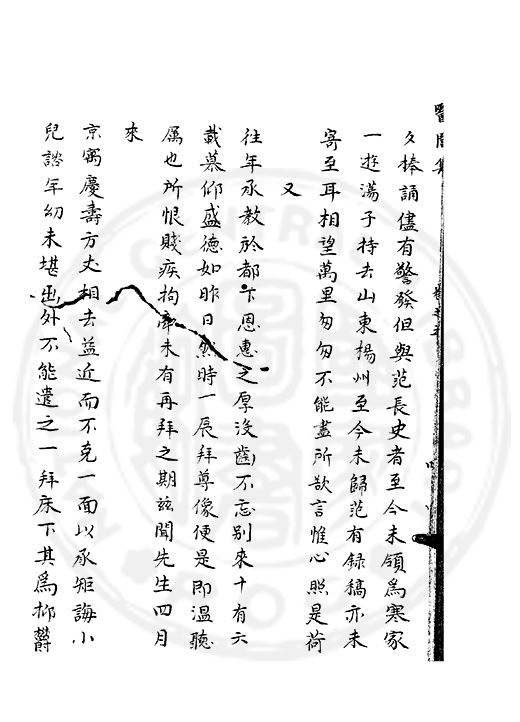 醫閭集
夂捧誦儘有警發但與范長史者至今未領爲寒家
一遊蕩子持去山東揚州至今未歸范有録稿亦未
寄至耳相望萬里匆匆不能盡所欲言惟心照是荷
又
往年承教於都下恩惠之厚没齒不忘别來十有六
載慕仰盛德如昨日然時一辰拜尊像便是即溫聽
厲也所恨賤疾拘未有再拜之期兹聞先生四月
來
京寓慶壽方丈相去益近而不克一面以承矩誨小
兒諮年幼未堪出外不能遣之一拜床下其爲抑鬱